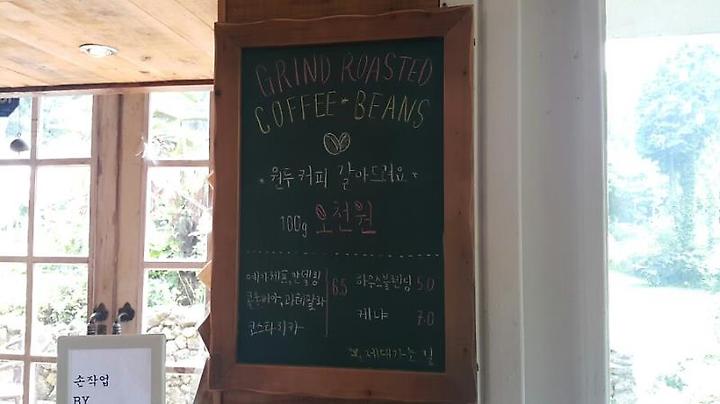 GRIND ROASTED
COFFEE BEANS
원두커피 갈아드려요
100g 오천원
예가체프, 만델링
콜롬비아, 과테말라
코스타리카
6.5
하우스블렌딩 5.0
케냐 7.0
제대가는 길
손작업
BY